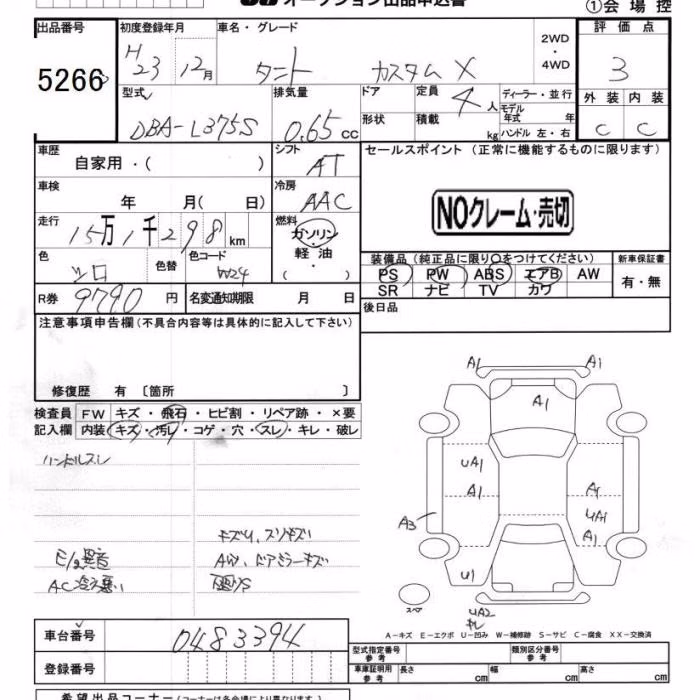 オークション出品申込書
①会場控
出品番号 初度登録年月 車名・グレード 2WD ・ 4WD 評価点
5266 H23 12月 タント カスタムX 3
型式 排気量 ドア 定員 4人 ディーラー・並行 外装 内装
モデル年式 年
DBA-L375S 0.65cc 形状 積載 kg ハンドル 左・右 C C
車歴 シフト セールスポイント(正常に機能するものに限ります)
自家用・( ) AT
車検 冷房
年 月( 日) AAC NOクレーム・売切
走行 燃料
15万1千298km ガソリン・軽油・( )
色 色替 色コード 装備品(純正品に限り○をつけてください) 新車保証書
シロ W24 PS PW ABS エアB AW 有・無
SR ナビ TV カワ
R券 9790円 名変通知期限 月 日 後日品
注意事項申告欄(不具合内容等は具体的に記入して下さい)
修復歴 有 〔箇所 〕
検査員記入欄 FW キズ・飛石・ヒビ割・リペア跡・×要
内装 キズ・汚レ・コゲ・穴・スレ・キレ・破レ
ハンドルスレ
キズU、スリキズ
E/g異音 AW、ドアミラーキズ
AC冷え悪い 下廻りS
A1 A1
A1
UA1
A1 A1
UA1
A3 A1
U1
スペア UA2
キレ
A-キズ E-エクボ U-凹み W-補修跡 S-サビ C-腐食 XX-交換済
車台番号 0483394 型式指定番号 参考 類別区分番号 参考
登録番号 車庫証明用 参考 長さ cm 幅 cm 高さ cm
希望出品コーナー(コーナーは各会場により異なります。)